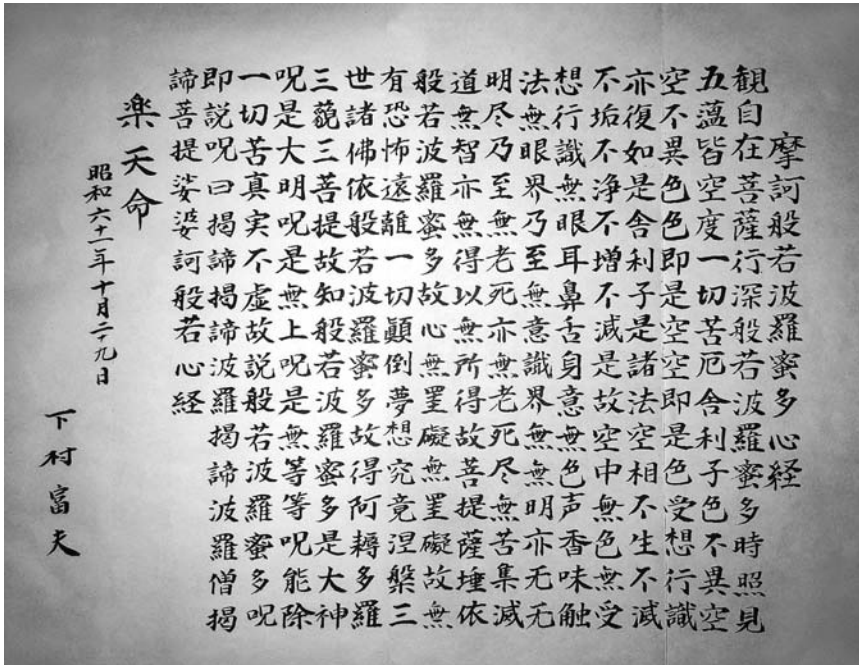 摩訶般若波羅蜜多心経
観自在菩薩行深般若波羅蜜多時照見
五蘊皆空度一切苦厄舎利子色不異空
空不異色色即是空空即是色受想行識
亦復如是舎利子是諸法空相不生不滅
不垢不浄不増不減是故空中無色無受
想行識無眼耳鼻舌身意無色声香味触
法無眼界乃至無意識界無無明亦无无
明尽乃至無老死亦無老死尽無苦集滅
道無智亦無得以無所得故菩提薩埵依
般若波羅蜜多故心無罣礙無罣礙故無
有恐怖遠離一切顛倒夢想究竟涅槃三
世諸佛依般若波羅蜜多故得阿耨多羅
三藐三菩提故知般若波羅蜜多是大神
呪是大明呪是無上呪是無等等呪能除
一切苦真実不虚故説般若波羅蜜多呪
即説呪曰揭諦揭諦波羅揭諦波羅僧揭
諦菩提娑婆訶般若心経
楽天命
昭和六十一年十月二十九日
下村富夫